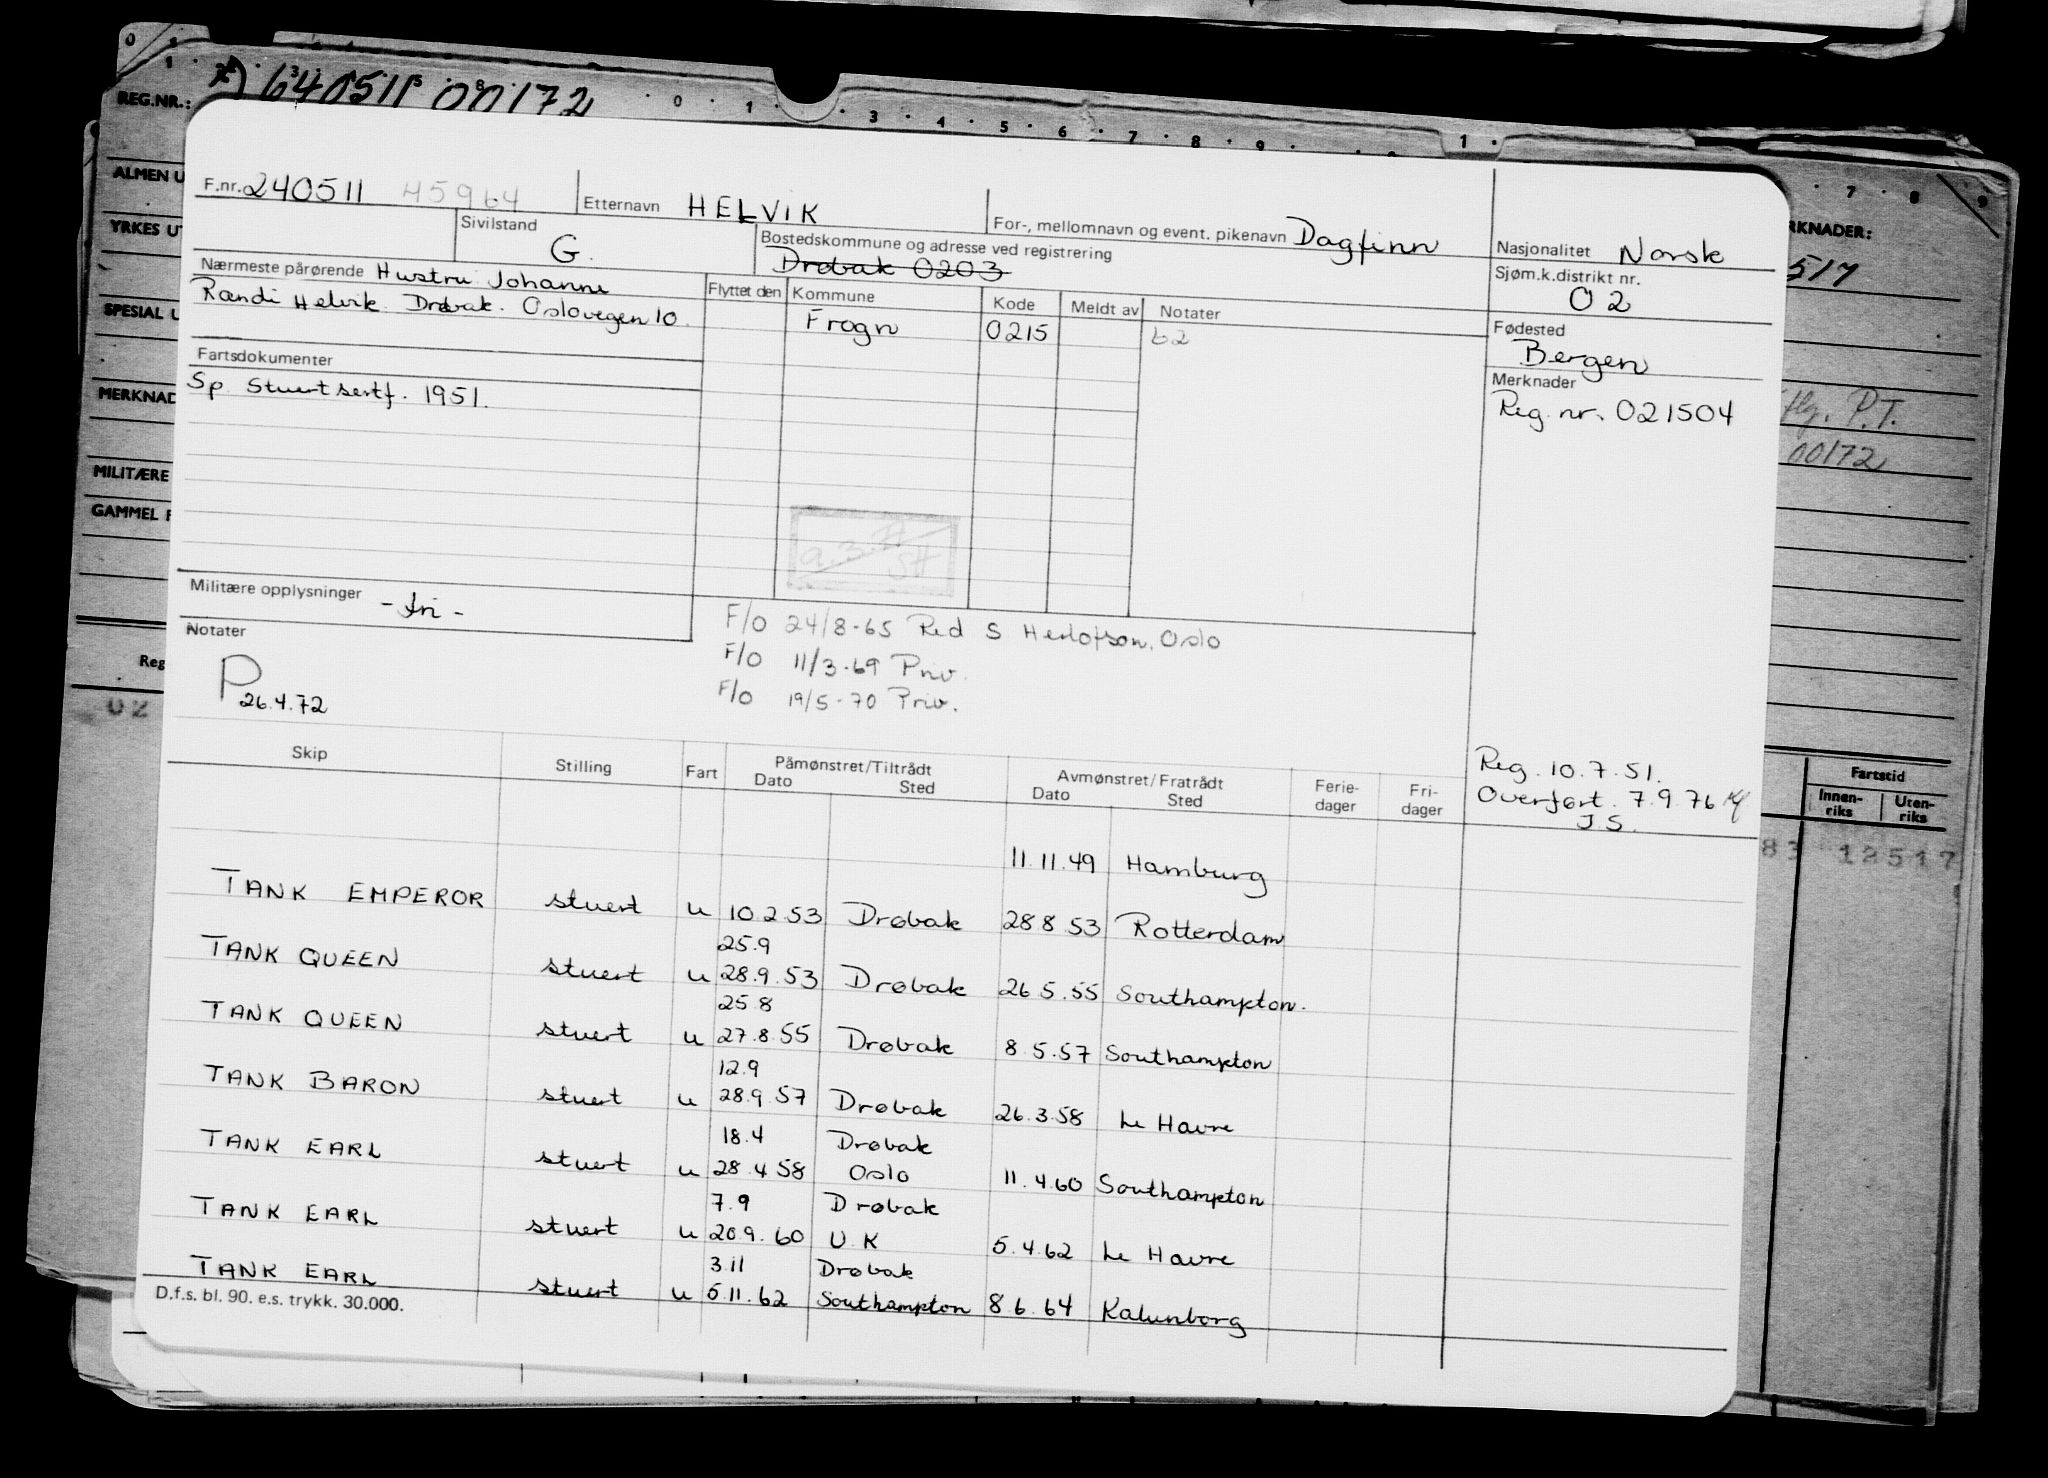 REG.NR.: 640511 00172
ALMEN U
YRKES UT
SPESIAL U
MERKNAD
MILITÆRE
GAMMEL F
Reg
02
RKNADER:
517
P.T.
00172
Fartstid
Innen-riks Uten-riks
83 12517
F.nr. 240511 45964 Etternavn HELVIK For-, mellomnavn og event. pikenavn Dagfinn Nasjonalitet Norsk
Sivilstand G. Bostedskommune og adresse ved registrering Drøbak 0203 Sjøm.k.distrikt nr. 02
Nærmeste pårørende Hustru Johanne
Randi Helvik. Drøbak. Osloveien 10.
Flyttet den Kommune Kode Meldt av Notater
Frogn 0215 62
Fødested
Bergen
Fartsdokumenter
Sp. Stuertsertf. 1951.
Merknader
Reg. nr. 021504
Militære opplysninger - fri -
Notater
P 26.4.72
F/O 24/8-65 Red S Herlofson, Oslo
F/O 11/3-69 Priv.
F/O 19/5-70 Priv.
Reg. 10.7.51.
Overført. 7.9.76
J.S.
Skip Stilling Fart Påmønstret/Tiltrådt Avmønstret/Fratrådt Ferie-dager Fri-dager
Dato Sted Dato Sted
11.11.49 Hamburg
TANK EMPEROR stuert u 10.2.53 Drøbak 28 8 53 Rotterdam
25.9
TANK QUEEN stuert u 28.9.53 Drøbak 26 5.55 Southampton.
25.8
TANK QUEEN stuert u 27.8.55 Drøbak 8.5.57 Southampton
12.9
TANK BARON stuert u 28.9.57 Drøbak 26.3.58 Le Havre
18.4 Drøbak
TANK EARL stuert u 28.4 58 Oslo 11.4.60 Southampton
7.9 Drøbak
TANK EARL stuert u 20.9.60 U.K 5.4.62 Le Havre
3.11 Drøbak
TANK EARL stuert u 5.11.62 Southampton 8.6.64 Kalunborg
D.f.s. bl. 90. e.s. trykk. 30.000.